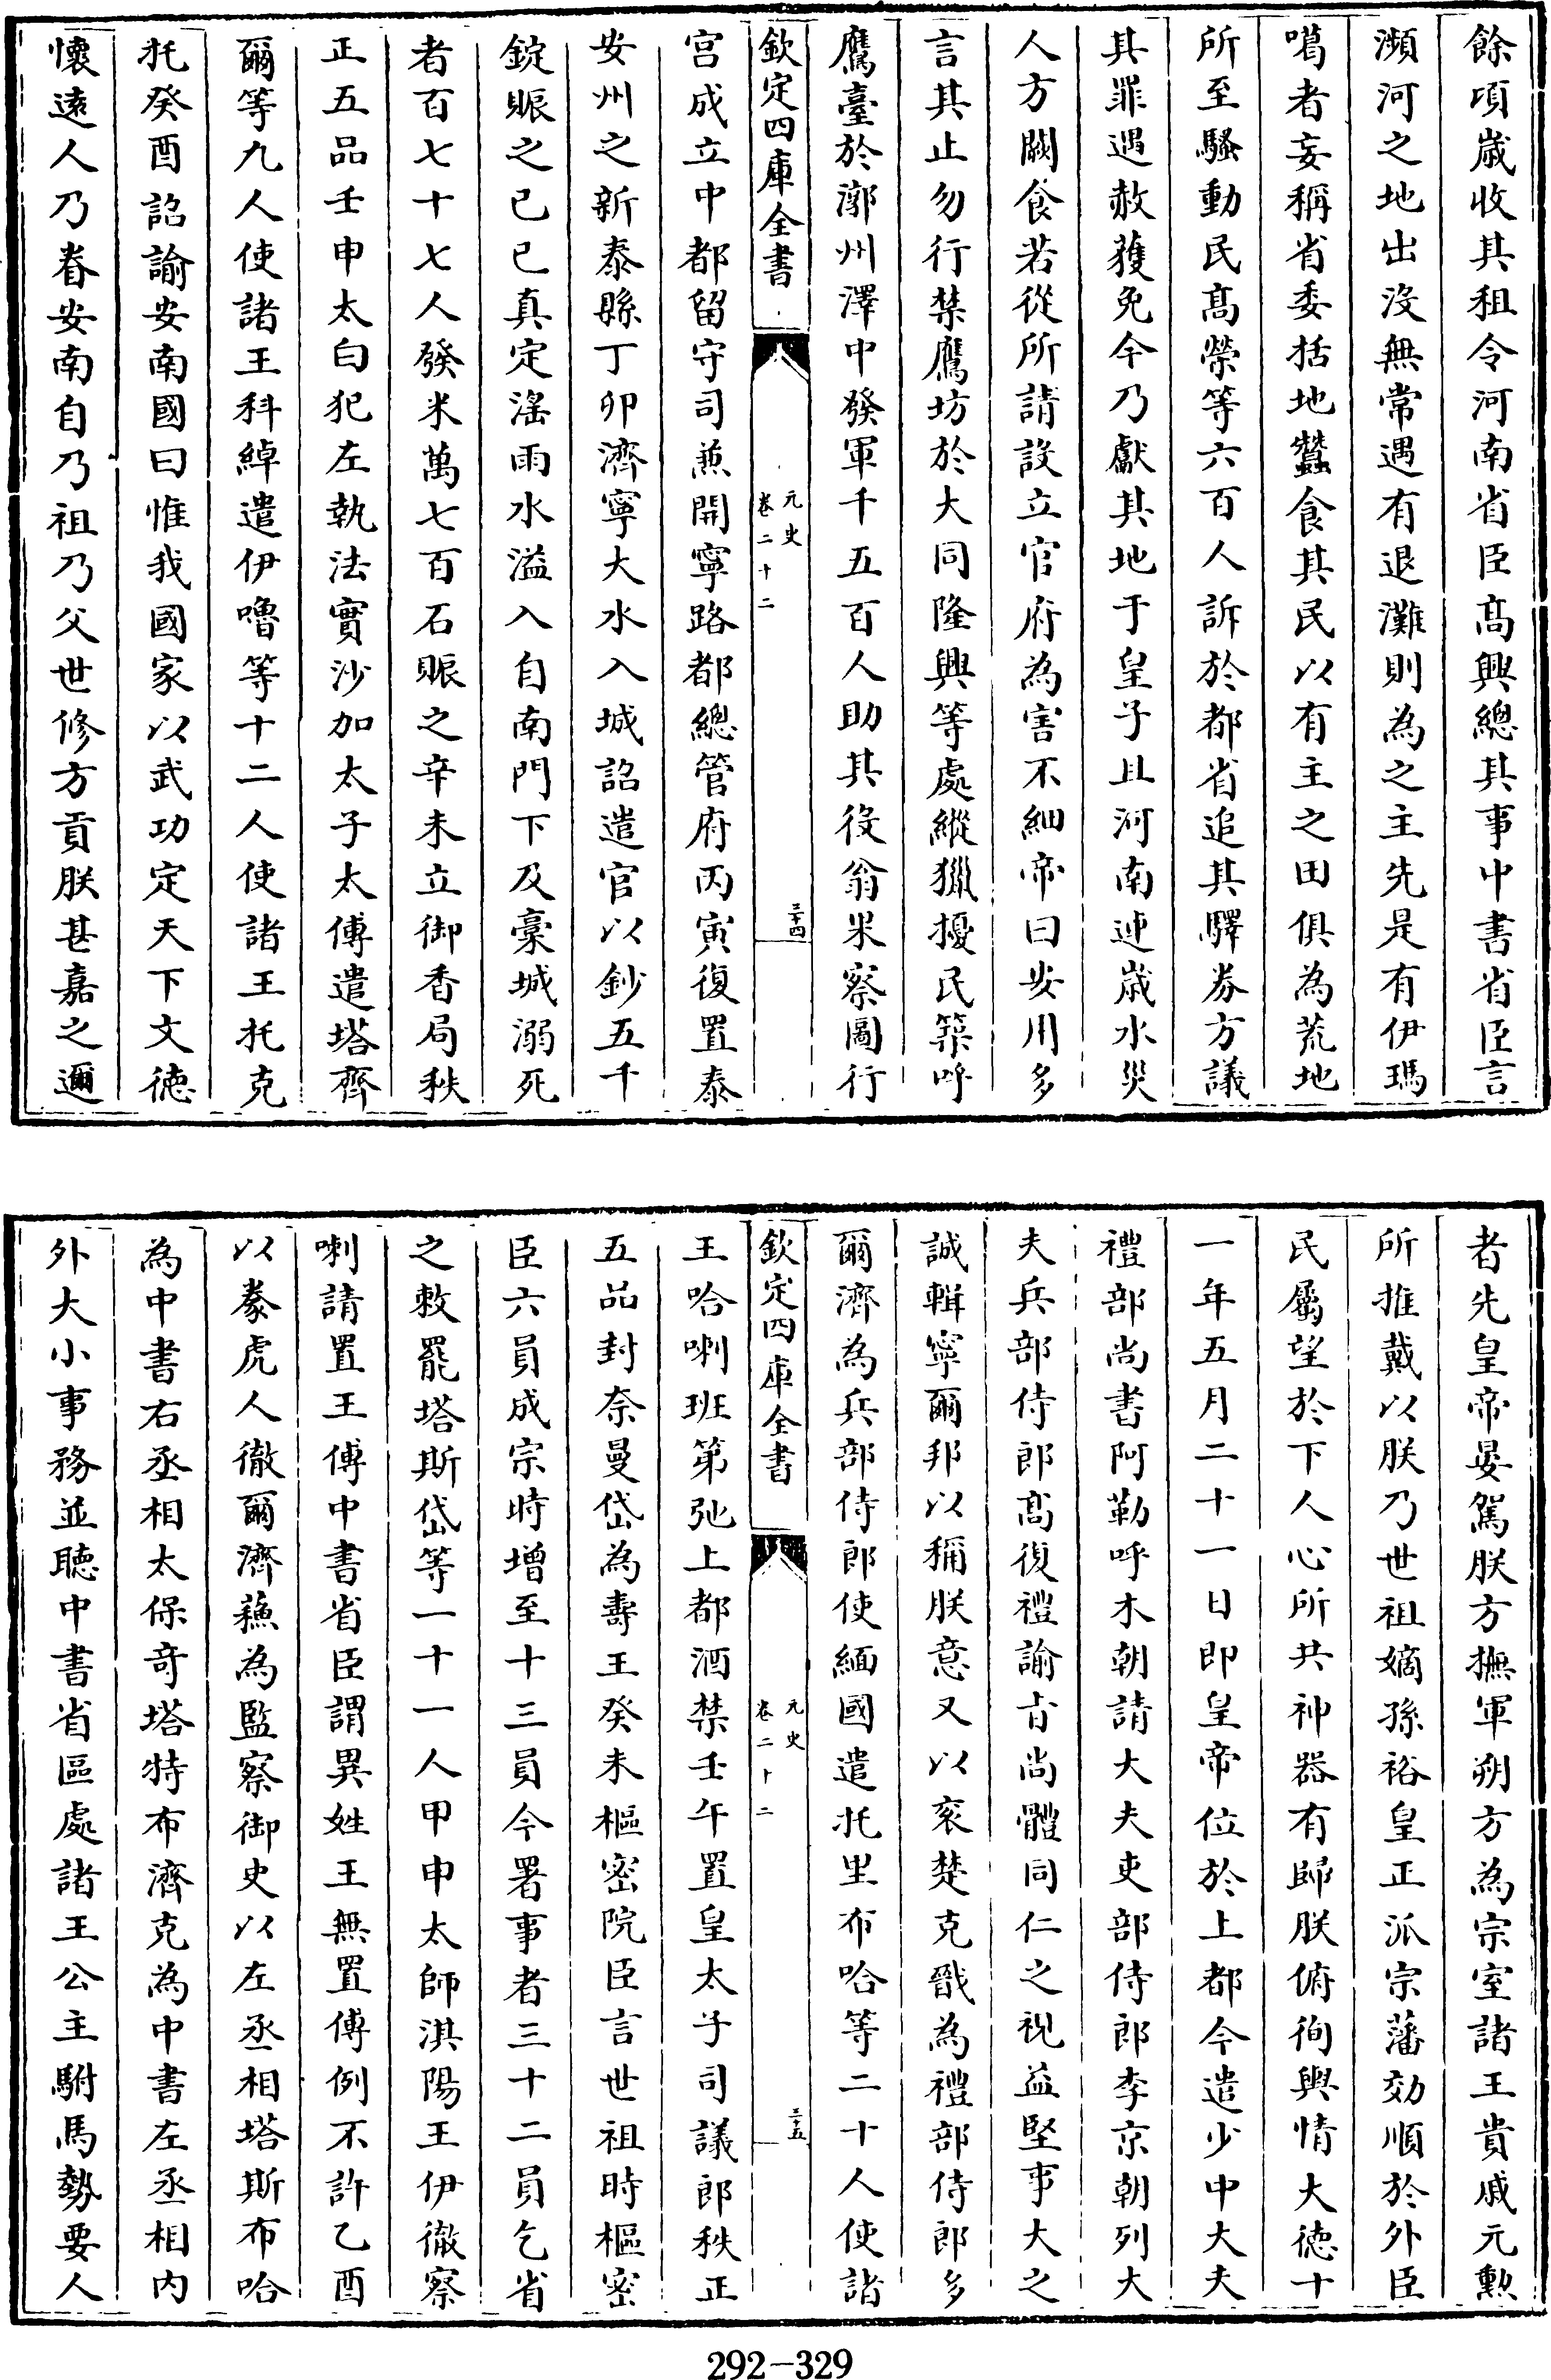 餘項嵗收其租令河南省臣髙興總其事中書省臣言
瀕河之地出沒無常遇有退灘則為之主先是有伊瑪
噶者妄稱省委括地蠶食其民以有主之田俱為荒地
所至騷動民髙榮等六百人訴於都省追其驛券方議
其罪遇赦獲免今乃獻其地于皇子且河南連嵗水災
人方闕食若從所請設立官府為害不細帝曰安用多
言其止勿行禁鷹坊於大同隆興等處縱獵擾民築呼
鷹臺於漷州澤中發軍千五百人助其役翁果察圖行
欽定四庫全書
元史
卷二十二
三十四
宫成立中都留守司兼開寧路都總管府丙寅復置泰
安州之新泰縣丁卯濟寧大水入城詔遣官以鈔五千
錠賑之己巳真定淫雨水溢入自南門下及藁城溺死
者百七十七人發米萬七百石賑之辛未立御香局秩
正五品壬申太白犯左執法實沙加太子太傅遣塔齊
爾等九人使諸王科綽遣伊嚕等十二人使諸王托克
托癸酉詔諭安南國曰惟我國家以武功定天下文徳
懷遠人乃眷安南自乃祖乃父世修方貢朕甚嘉之邇
者先皇帝晏駕朕方撫軍朔方為宗室諸王貴戚元勲
所推戴以朕乃世祖嫡孫裕皇正派宗藩効順於外臣
民屬望於下人心所共神器有歸朕俯徇輿情大徳十
一年五月二十一日即皇帝位於上都今遣少中大夫
禮部尚書阿勒呼木朝請大夫吏部侍郎李京朝列大
夫兵部侍郎髙復禮諭㫖尚體同仁之視益堅事大之
誠輯寧爾邦以稱朕意又以衮楚克戩為禮部侍郎多
爾濟為兵部侍郎使緬國遣托里布哈等二十人使諸
欽定四庫全書
元史
卷二十二
三十五
王哈喇班第弛上都酒禁壬午置皇太子司議郎秩正
五品封奈曼岱為夀王癸未樞密院臣言世祖時樞密
臣六員成宗時增至十三員今署事者三十二員乞省
之敕罷塔斯岱等一十一人甲申太師淇陽王伊徹察
喇請置王傅中書省臣謂異姓王無置傅例不許乙酉
以豢虎人徹爾濟蘓為監察御史以左丞相塔斯布哈
為中書右丞相太保竒塔特布濟克為中書左丞相内
外大小事務並聽中書省區處諸王公主駙馬勢要人
292-329